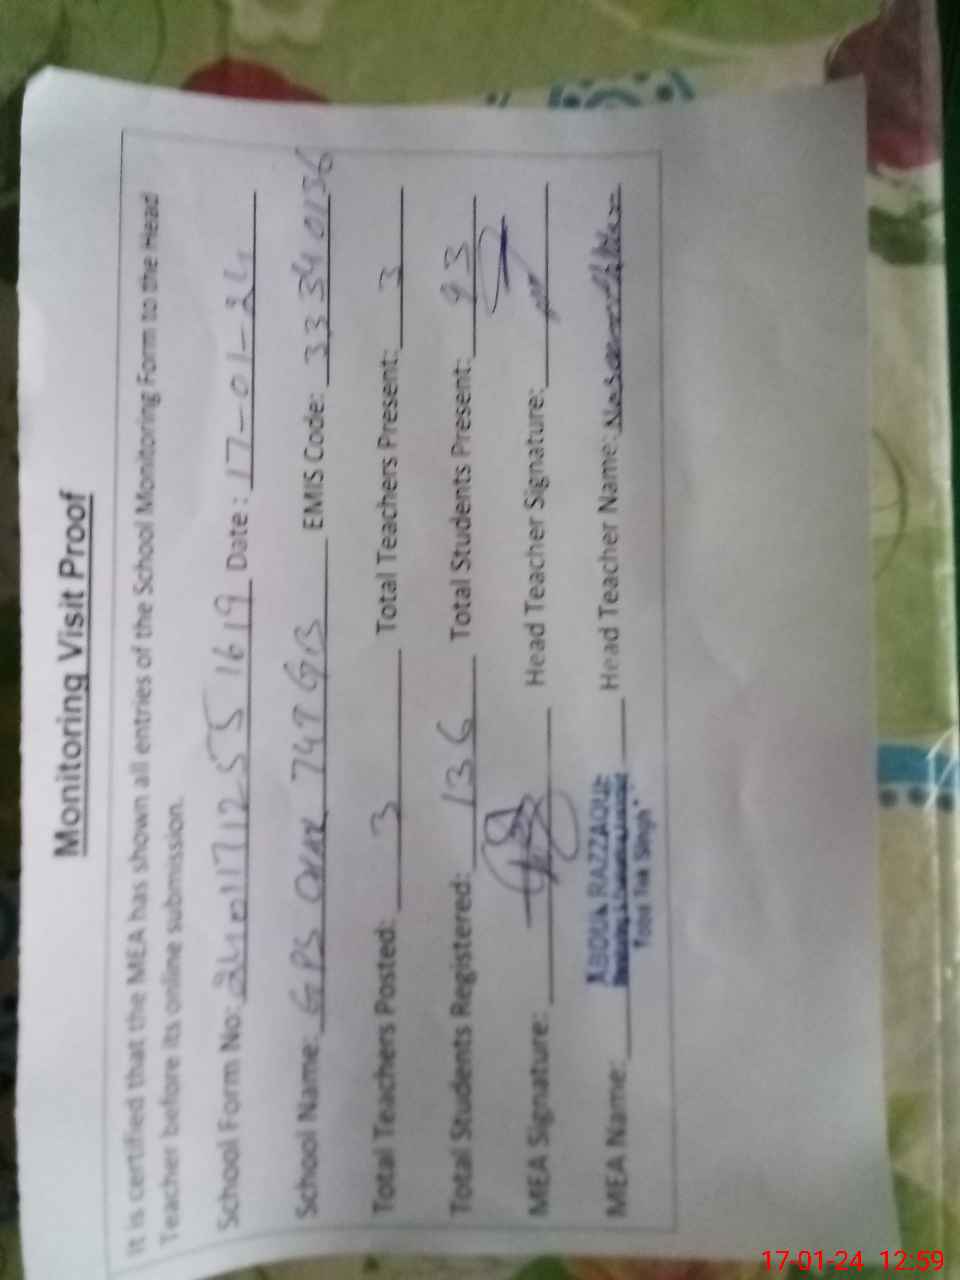 Monitoring Visit Proof
It is certified that the MEA has shown all entries of the School Monitoring Form to the Head
Teacher before its online submission.
School Form No: 24011712551619 Date : 17-01-24
School Name: GPS 747 GB EMIS Code: 33340136
Total Teachers Posted: 3 Total Teachers Present: 3
Total Students Registered: 136 Total Students Present: 93
MEA Signature: Head Teacher Signature:
MEA Name: ABDUL RAZZAQUE Head Teacher Name:
Toba Tek Singh
17-01-24 12:59